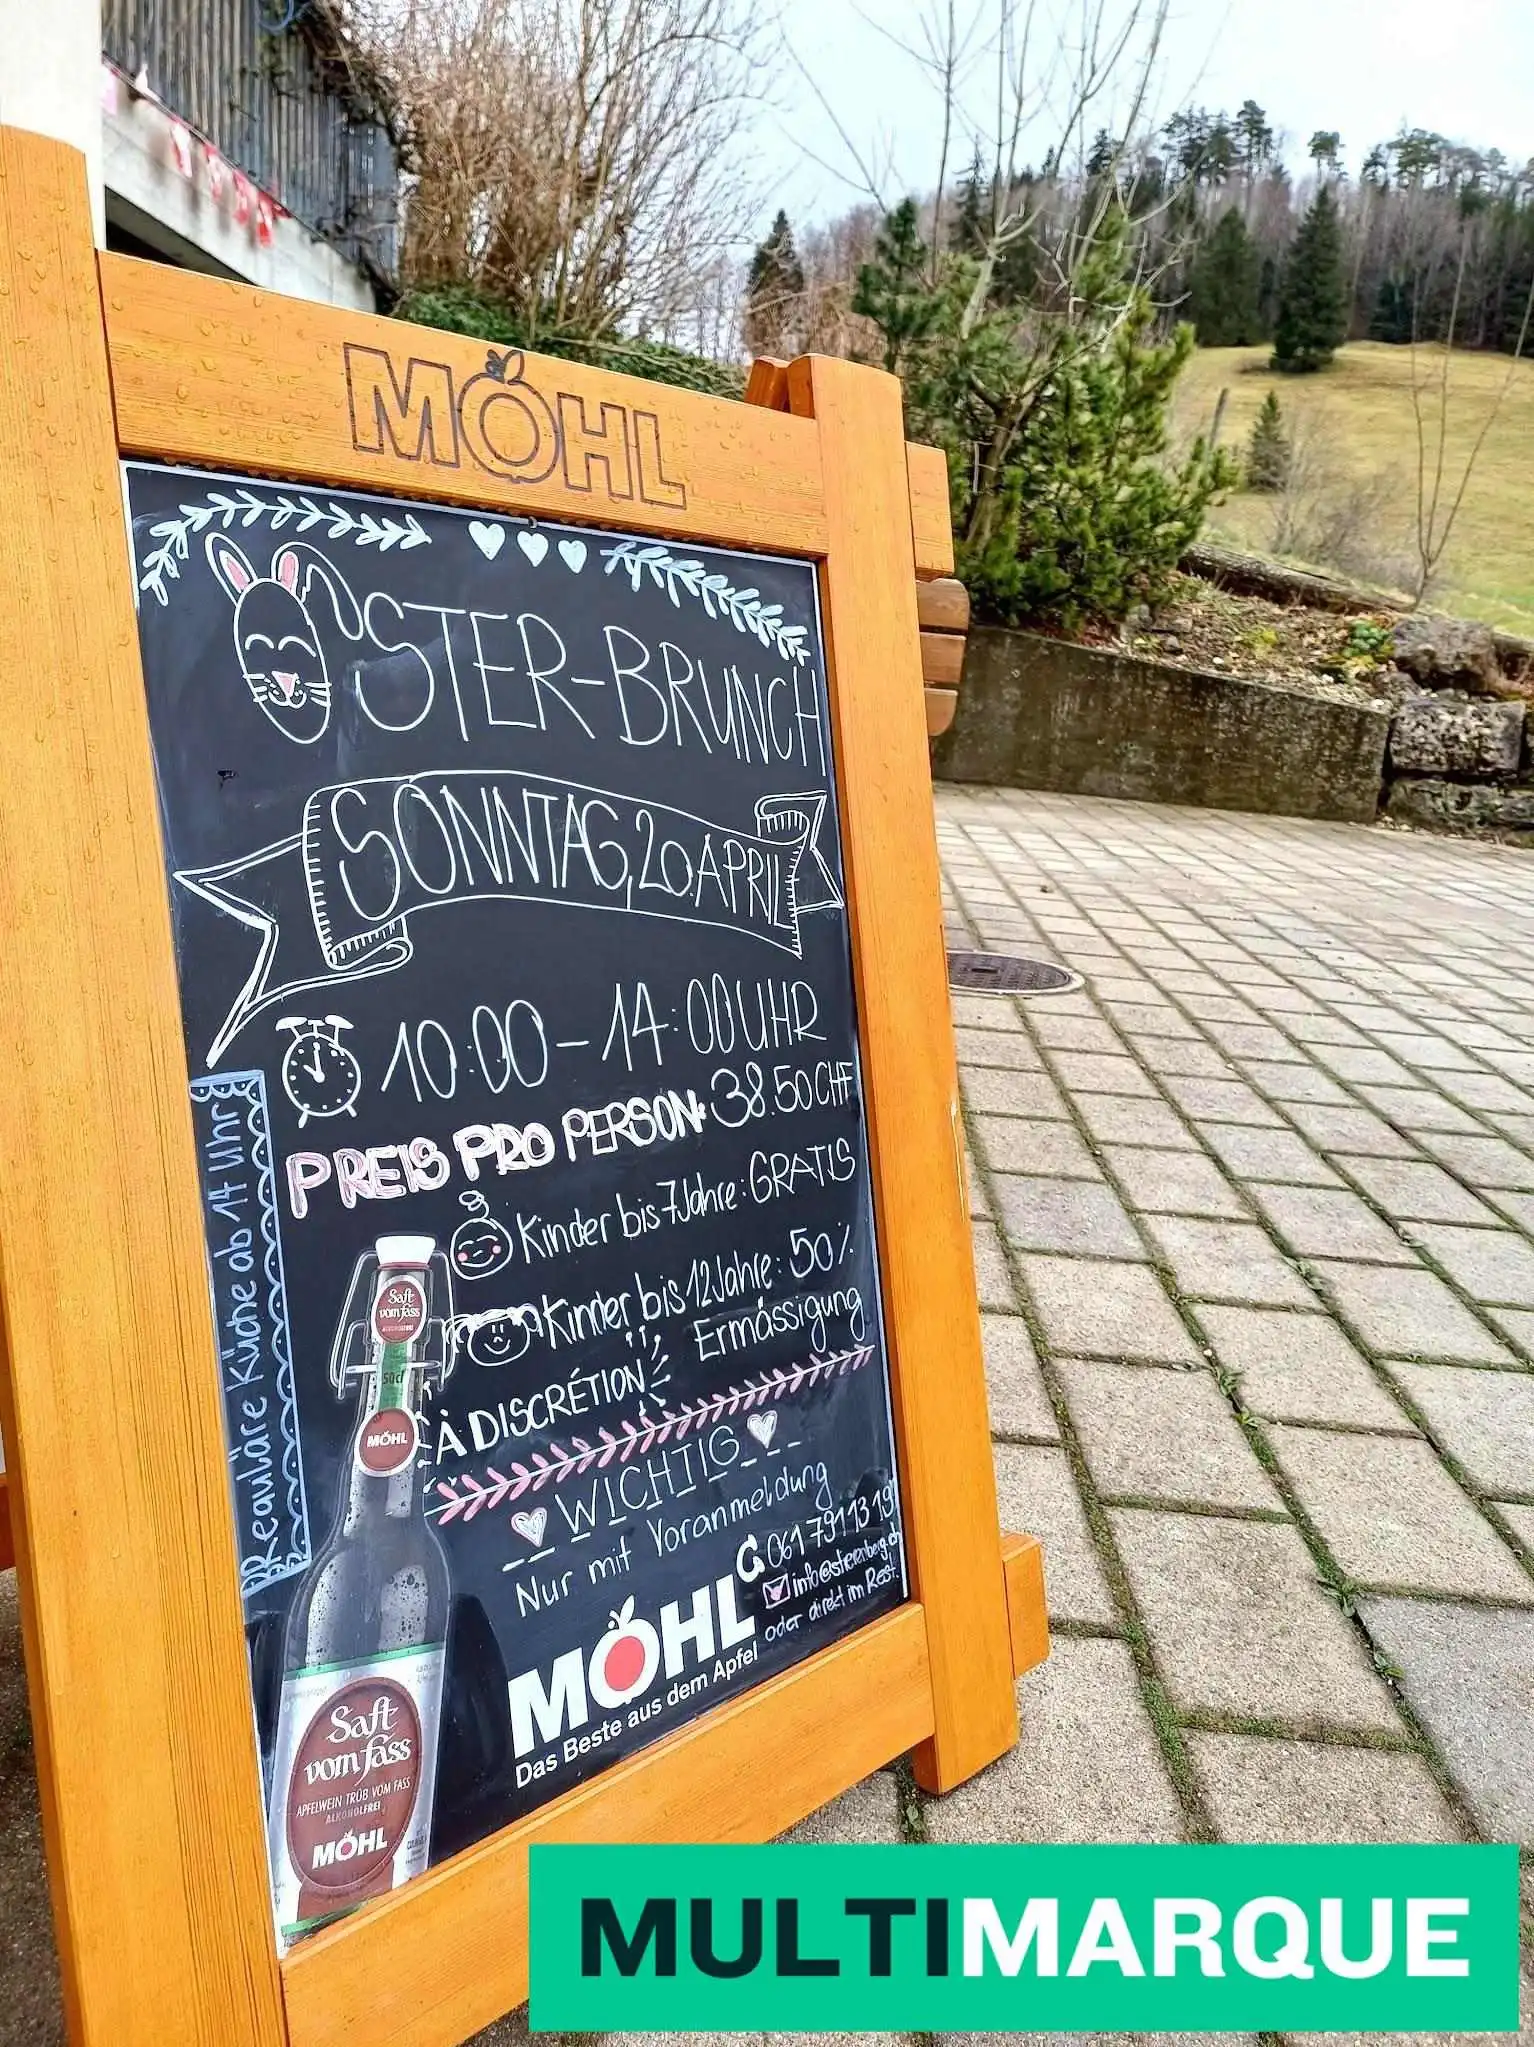 MÖHL
OSTER-BRUNCH
SONNTAG, 20. APRIL
10:00 - 14:00 UHR
PREIS PRO PERSON: 38.50 CHF
Kinder bis 7 Jahre: GRATIS
Kinder bis 12 Jahre: 50%
Ermässigung
À DISCRÉTION
WICHTIG
Nur mit Voranmeldung
061 791 13 19
info@stierenberg.ch
oder direkt im Rest.
Reguläre Küche ab 14 Uhr
MÖHL
Das Beste aus dem Apfel
Saft
vom fass
ALKOHOLFREI
50cl
MÖHL
Saft
vom fass
APFELWEIN TRÜB VOM FASS
ALKOHOLFREI
MÖHL
MULTIMARQUE